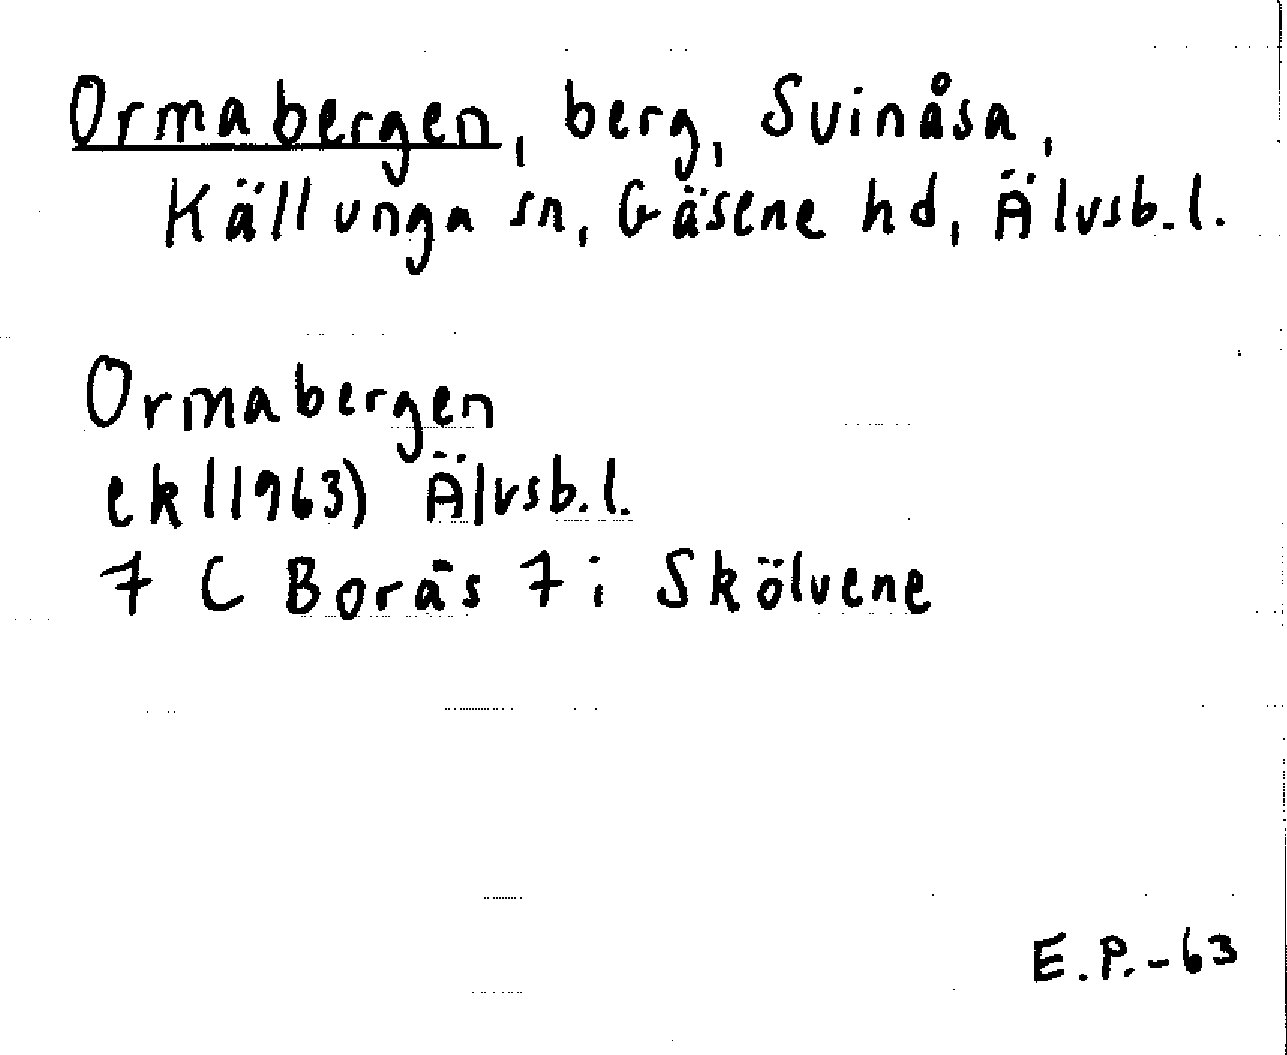 Ormabergen, berg, Svinåsa,
Källunga sn, Gäsene hd, Älvsb.l.
Ormabergen
ek(1963) Älvsb.l.
7 C Borås 7 i Skölvene
E.P.-63